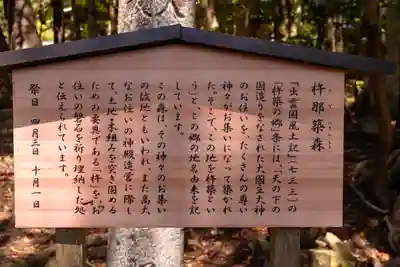 杵那築森
きなつきのもり
『出雲国風土記』(七三三)の
「杵築の郷」条には、「天の下の
国造りをなされた大國主大神
のお住いを、たくさんの尊い
神々がお集いになって築かれ
た。そこで、この地を杵築とい
う」と、この郷の地名由来を記
しています。
この森は、その神々のお集い
の故地ともいわれ、また高大
なお住いの神殿造営に際し
て、土地や木組みを突き固める
ための要具である「杵」を、お
住いの磐石を祈り埋納した処
と伝えられています。
祭日 四月三日 十月一日